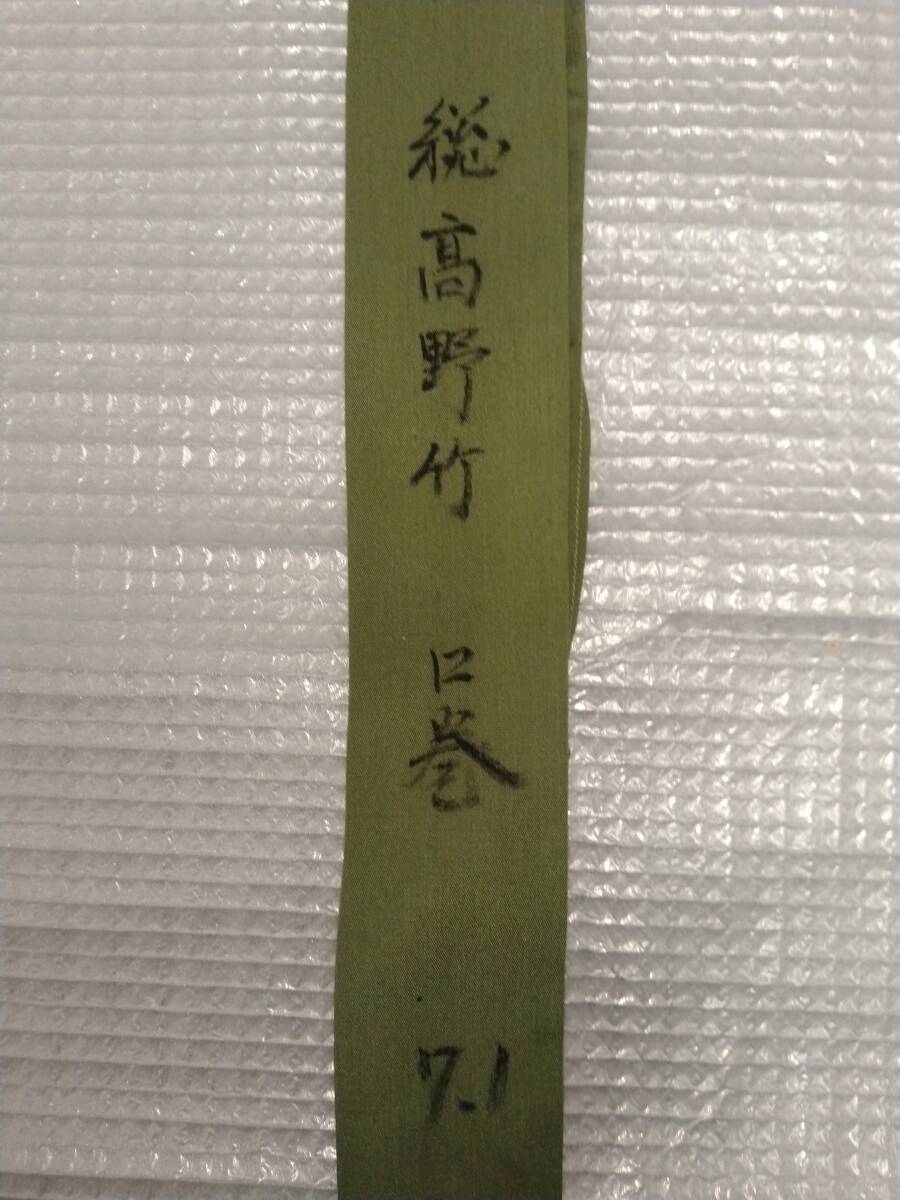 総高野竹 口巻 7.1